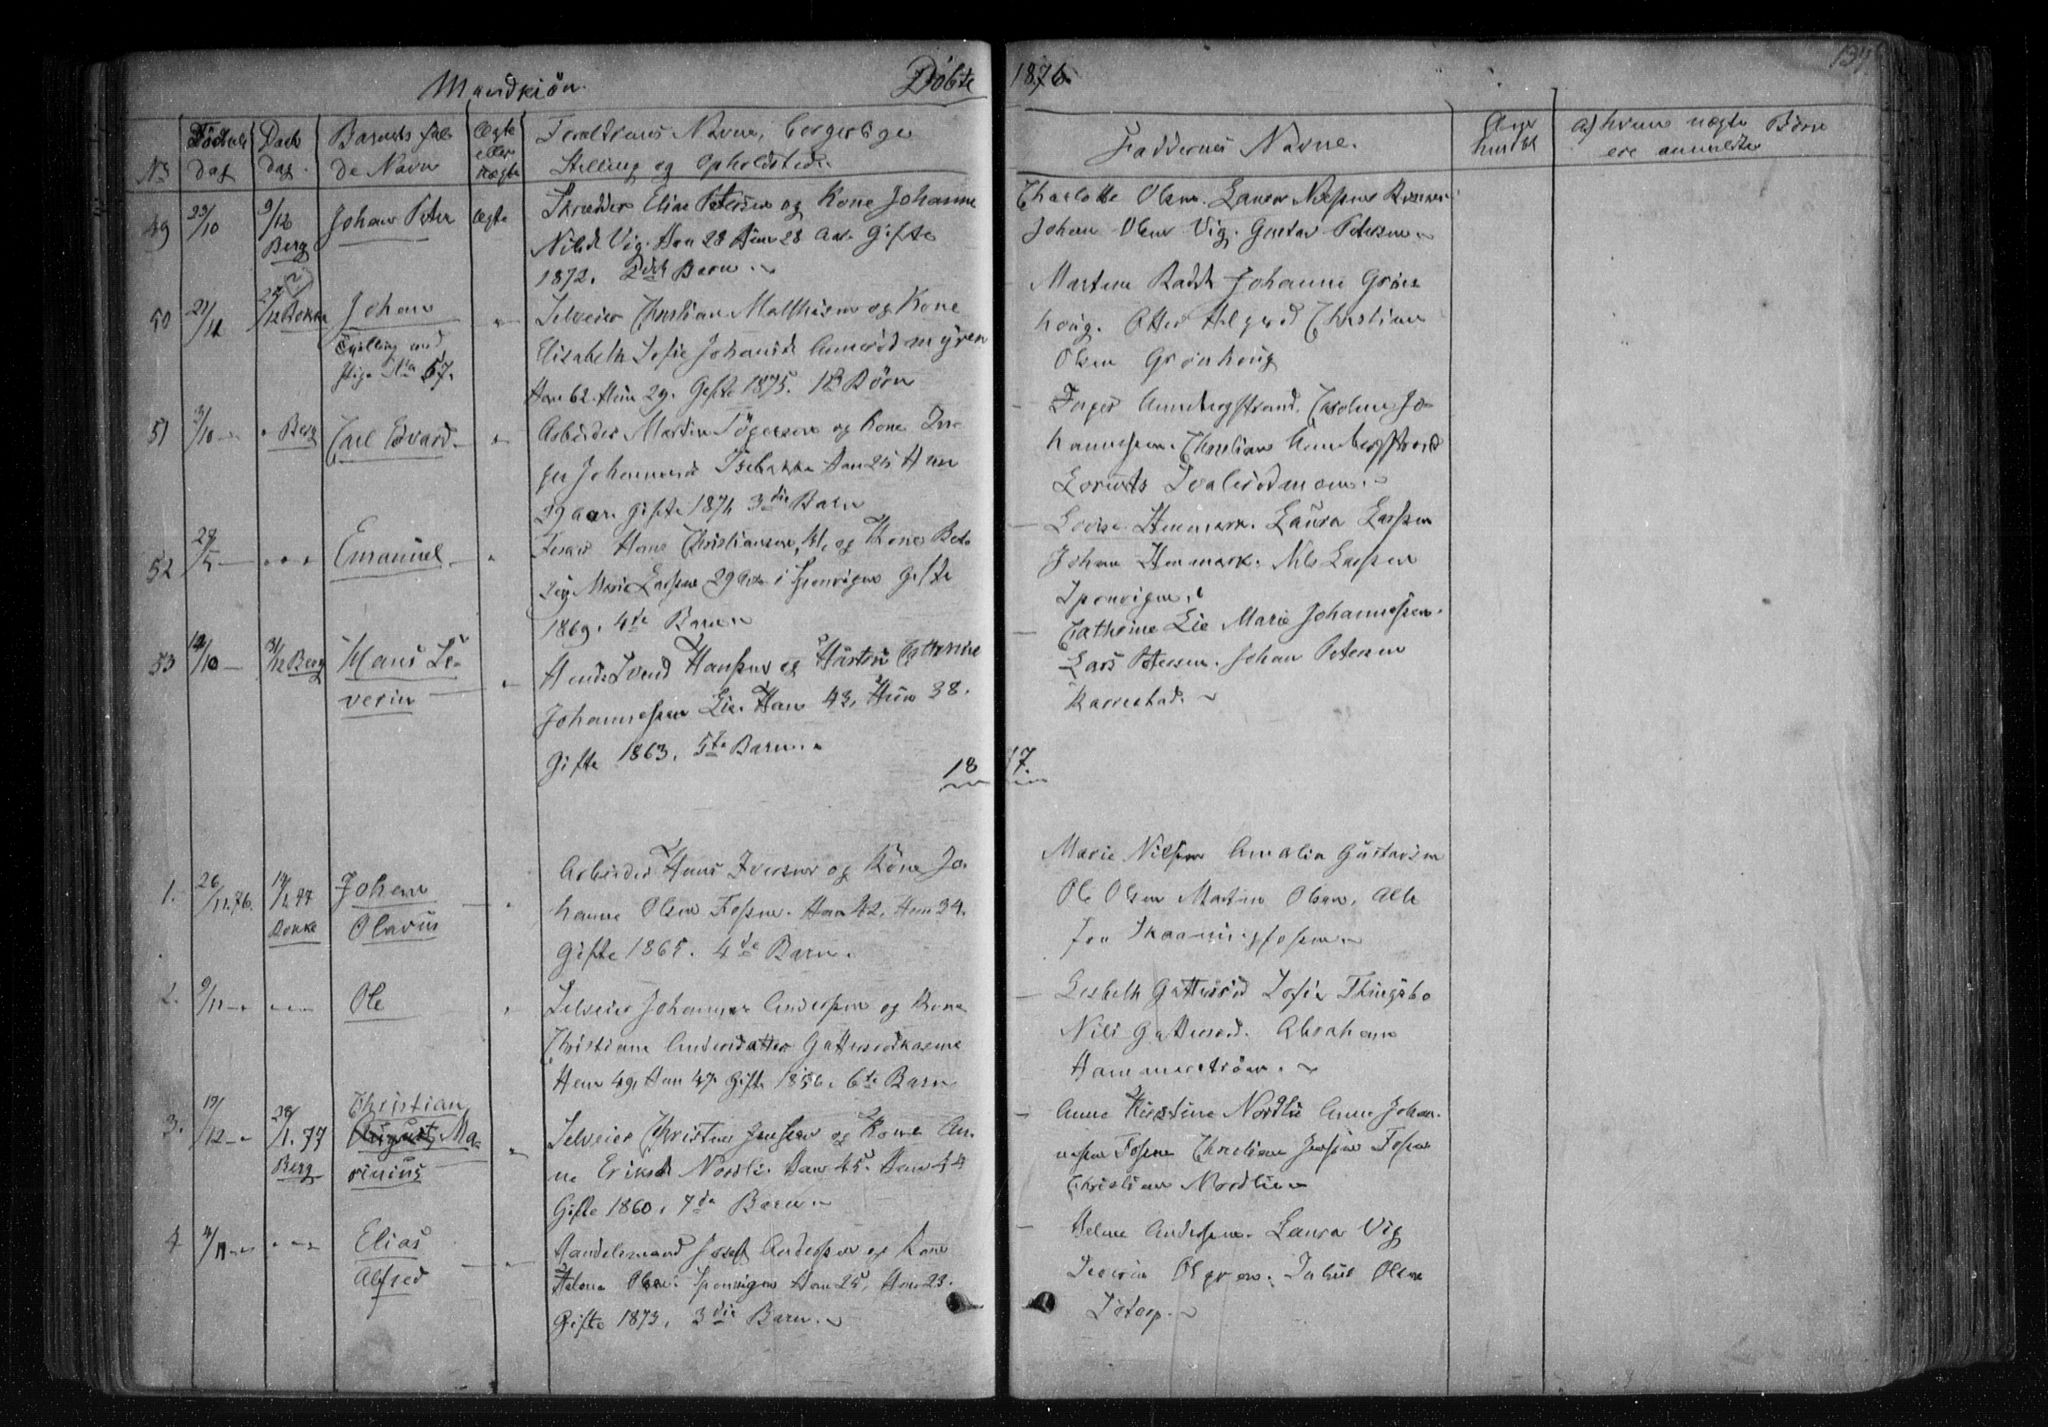 Mandkiön. Döbte 1876.
134
No Födsels dag Daab dag. Barnets ful de Navn Ægte eller uægte Foreldrenes Navne, borgerlige Stilling og Opholdsted. Faddernes Navne. Anm af hvem uægte Börn ere anmeldte
49 29/10 9/12 Berg Johan Peter ægte
Skrædder Elias Petersen og Kone Johanne
Nilsd Vig. Han 28 Hun 28 Aar. Gifte
1872. 2det Barn.
Charlotte Olsen. Laura
Johan Olsen Vig. Gustav Petersen
50 21/11 Johan
Tvilling med
Pige No 57.
Selveier Christian Mathisen og Kone
Elisabeth Sofie Johansd Aunerödmyren
Han 62. Hun 29. Gifte 1875. Börn
Johanne Grön
houg. Christian
Olsen Grönhoug
51 3/10 Berg Carl Edvard
Arbeider Martin og Kone In-
ger Johannesd Isebakke Han 25 Hun
29 aar. Gifte 1874 3die Barn
Inger Annebergstrand. Caroline Jo-
hannesen. Christian Annebergstrand
52 Emanuel
Hans Christiansen, 41, og Kone
Marie Larsen 29 Aar i Sponvigen Gifte
1869. 4de Barn
Lovise Henmark. Laura Larsen
Johan Henmark. Nils Larsen
Sponvigen.
53 /10 /12 Berg Hans Se-
verin
Svend Hansen og Cathrine
Johannesen Lie. Han 43, Hun 38.
Gifte 1863. 5te Barn.
Cathrine Lie Marie Johannesen.
Lars Petersen. Johan Petersen
Karrestad.
1877.
1. 26/11.76. 14/1.77 Bokke Johan
Olavus
Arbeider Hans Iversen og Kone Jo-
hanne Olsen Fossen. Han 42, Hun 34.
Gifte 1865. 4de Barn.
Marie Nilsen Amalia Gustavsen
Ole Olsen Martin Olsen, Alle
fra Skaaningfossen
2. 9/11 Ole
Selveier Johannes Andersen og Kone
Christiane Andersdatter Gatterödkasene
Han 49, Hun 47. Gifte 1856. 6te Barn
Lisbeth Gatteröd Sofie Thingsbo
Nils Gatteröd. Abraham
Hammerström.
3. 19/12 28/1.77 Berg Christian
August Ma-
rinius
Selveier Christian Jensen og Kone An-
ne Eriksd Nordli. Han 45. Hun 44
Gifte 1860. 7de Barn
Anne Kirstine Nordli Anne Johan-
nesen Fossen Christian Jensen Fossen
Christian Nordlien
4 /11 Elias
Alfred
Handelsmand Josef Andersen og Kone
Helene Olsen. Sponvigen Han 25, Hun 23.
Gifte 1873. 3die Barn.
Helene Andersen. Laura Vig
Jakob Olsen
Istorp.